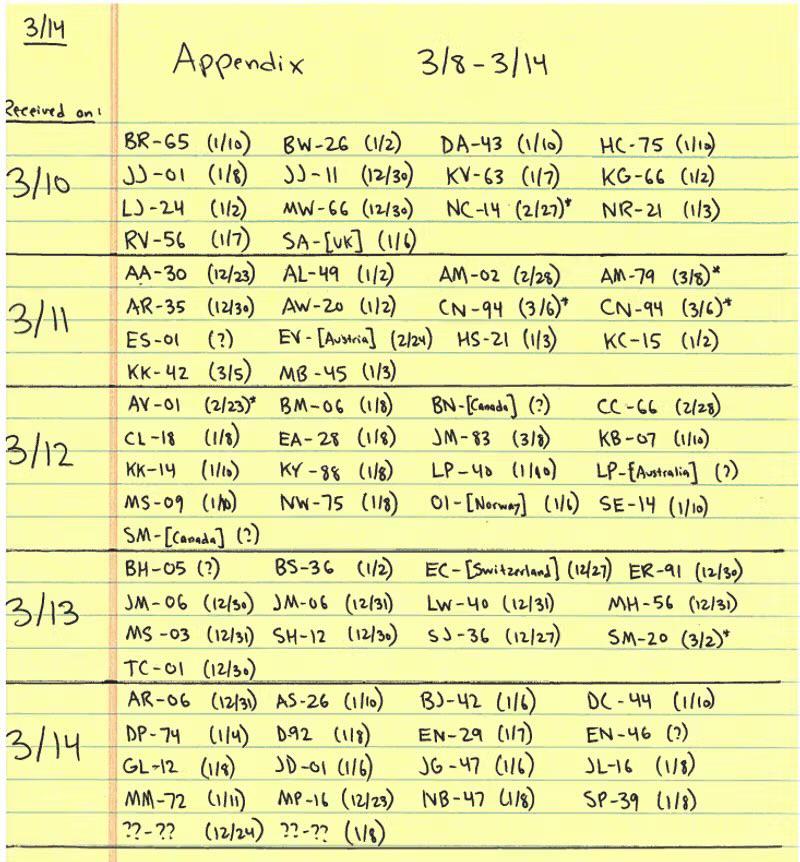 3/14
Appendix 3/8-3/14
Received on:
3/10
BR-65 (1/10) BW-26 (1/2) DA-43 (1/10) HC-75 (1/10)
JJ-01 (1/8) JJ-11 (12/30) KV-63 (1/7) KG-66 (1/2)
LJ-24 (1/2) MW-66 (12/30) NC-14 (2/27)* NR-21 (1/3)
RV-56 (1/7) SA-[UK] (1/6)
3/11
AA-30 (12/23) AL-49 (1/2) AM-02 (2/28) AM-79 (3/8)*
AR-35 (12/30) AW-20 (1/2) CN-94 (3/6)* CN-94 (3/6)*
ES-01 (?) EV-[Austria] (2/24) HS-21 (1/3) KC-15 (1/2)
KK-42 (3/5) MB-45 (1/3)
3/12
AV-01 (2/23)* BM-06 (1/8) BN-[Canada] (?) CC-66 (2/28)
CL-18 (1/8) EA-28 (1/8) JM-83 (3/8) KB-07 (1/10)
KK-14 (1/10) KY-88 (1/8) LP-40 (1/10) LP-[Australia] (?)
MS-09 (1/10) NW-75 (1/8) OI-[Norway] (1/6) SE-14 (1/10)
SM-[Canada] (?)
3/13
BH-05 (?) BS-36 (1/2) EC-[Switzerland] (12/27) ER-91 (12/30)
JM-06 (12/30) JM-06 (12/31) LW-40 (12/31) MH-56 (12/31)
MS-03 (12/31) SH-12 (12/30) SJ-36 (12/27) SM-20 (3/2)*
TC-01 (12/30)
3/14
AR-06 (12/31) AS-26 (1/10) BJ-42 (1/6) DC-44 (1/10)
DP-74 (1/4) D92 (1/8) EN-29 (1/7) EN-46 (?)
GL-12 (1/8) JD-01 (1/6) JG-47 (1/6) JL-16 (1/8)
MM-72 (1/11) MP-16 (12/23) NB-47 (1/8) SP-39 (1/8)
??-?? (12/24) ??-?? (1/8)